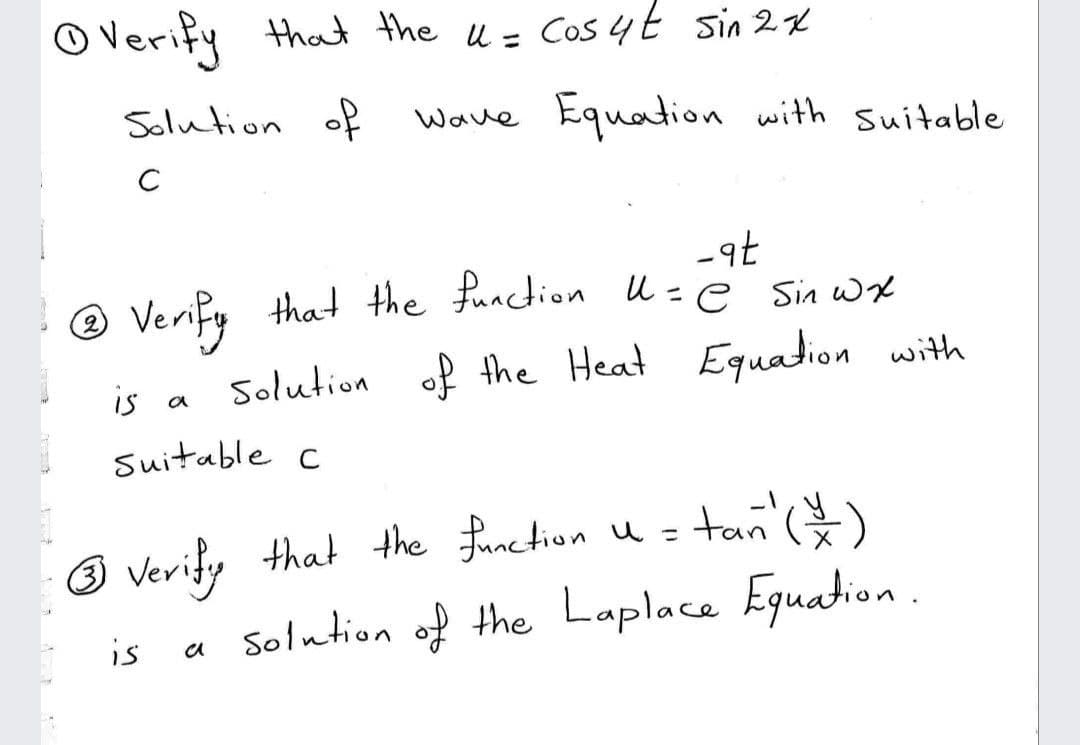 ① Verify that the u = Cos 4t sin 2x
Solution of wave Equation with suitable
C
② Verify that the function u = e^{-9t} Sin wx
is a solution of the Heat Equation with
suitable c
③ Verify that the function u = tan^{-1}(y/x)
is a solution of the Laplace Equation.